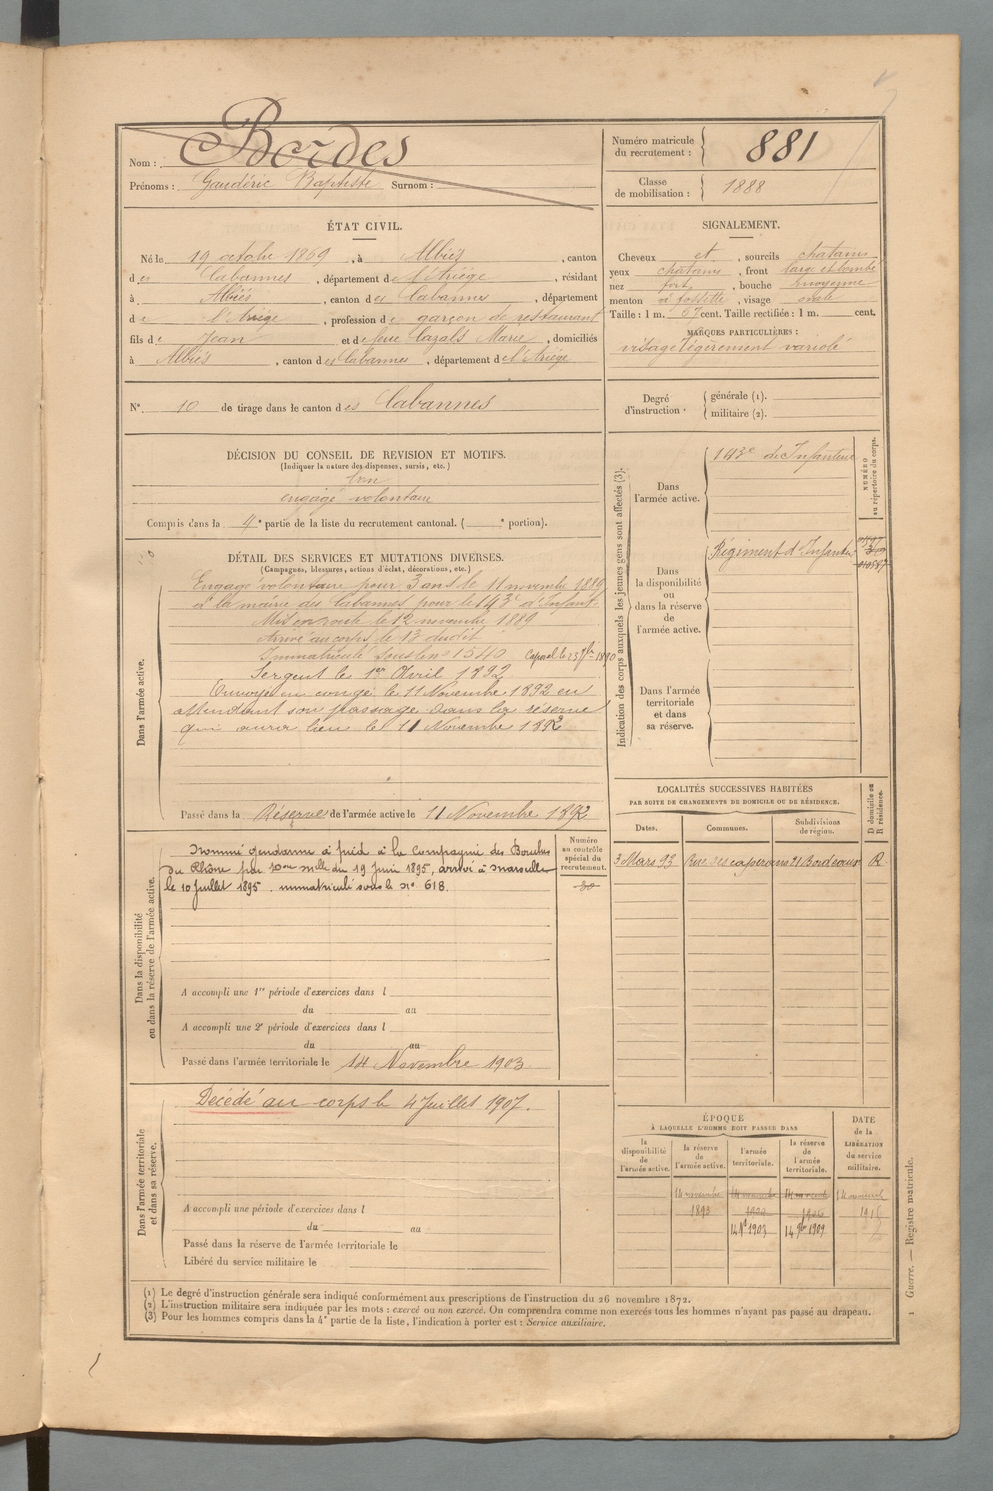 Nom : Bordes
Prénoms : Gaudéric Baptiste Surnom :
Numéro matricule du recrutement : 881
Classe de mobilisation : 1888
ÉTAT CIVIL.
Né le 19 octobre 1869, à Albiés, canton
des Cabannes, département de l'Ariége, résidant
à Albiés, canton des Cabannes, département
de l'Ariége, profession de garçon de restaurant
fils de Jean et de feue Cazals Marie, domiciliés
à Albiés, canton des Cabannes, département de l'Ariége
N° 10 de tirage dans le canton des Cabannes
SIGNALEMENT.
Cheveux et, sourcils chatains
yeux chatains, front large et bombé
nez fort, bouche moyenne
menton à fossette, visage ovale
Taille : 1 m. 67 cent. Taille rectifiée : 1 m. cent.
MARQUES PARTICULIÈRES :
visage légèrement variolé
Degré d'instruction · générale (1).
militaire (2).
DÉCISION DU CONSEIL DE REVISION ET MOTIFS.
(Indiquer la nature des dispenses, sursis, etc.)
bon
engagé volontaire
Compris dans la 4e partie de la liste du recrutement cantonal. ( e portion).
DÉTAIL DES SERVICES ET MUTATIONS DIVERSES.
(Campagnes, blessures, actions d'éclat, décorations, etc.)
Dans l'armée active.
Engagé volontaire pour 3 ans le 11 novembre 1889
à la mairie des Cabannes pour le 143e d'Infant.
Mis en route le 12 novembre 1889
Arrivé au corps le 13 dudit
Immatriculé sous le no 1540 Caporal le 1890
Sergent le 1er Avril 1892
Envoyé en congé le 11 Novembre 1892 en
attendant son passage dans la réserve
qui aura lieu le 11 Novembre 1892
Passé dans la Réserve de l'armée active le 11 Novembre 1892
Indication des corps auxquels les jeunes gens sont affectés (3).
Dans l'armée active.
143e d'Infanterie
NUMÉRO au répertoire du corps.
Dans la disponibilité ou dans la réserve de l'armée active.
Régiment d'Infanterie
Dans l'armée territoriale et dans sa réserve.
LOCALITÉS SUCCESSIVES HABITÉES
PAR SUITE DE CHANGEMENTS DE DOMICILE OU DE RÉSIDENCE.
D domicile ou R résidence.
Dates. Communes. Subdivisions de région.
3 Mars 93 Rue des 21 Bordeaux R
Dans la disponibilité ou dans la réserve de l'armée active.
Numéro au contrôle spécial du recrutement.
Nommé gendarme à pied à la Compagnie des Bouches
du Rhône par Don mille du 19 Juin 1895, arrivé à Marseille
le 10 Juillet 1895. immatriculé sous le no 618.
A accompli une 1re période d'exercices dans l
du au
A accompli une 2e période d'exercices dans l
du au
Passé dans l'armée territoriale le 14 Novembre 1903
Dans l'armée territoriale et dans sa réserve.
Décédé au corps le 4 Juillet 1907.
A accompli une période d'exercices dans l
du au
Passé dans la réserve de l'armée territoriale le
Libéré du service militaire le
ÉPOQUE
À LAQUELLE L'HOMME DOIT PASSER DANS
la disponibilité de l'armée active.
la réserve de l'armée active.
l'armée territoriale.
la réserve de l'armée territoriale.
DATE de la LIBÉRATION du service militaire.
14 novembre 14 novembre
1893
1903 1909
(1) Le degré d'instruction générale sera indiqué conformément aux prescriptions de l'instruction du 26 novembre 1872.
(2) L'instruction militaire sera indiquée par les mots : exercé ou non exercé. On comprendra comme non exercés tous les hommes n'ayant pas passé au drapeau.
(3) Pour les hommes compris dans la 4e partie de la liste, l'indication à porter est : Service auxiliaire.
1 Guerre. — Registre matricule.